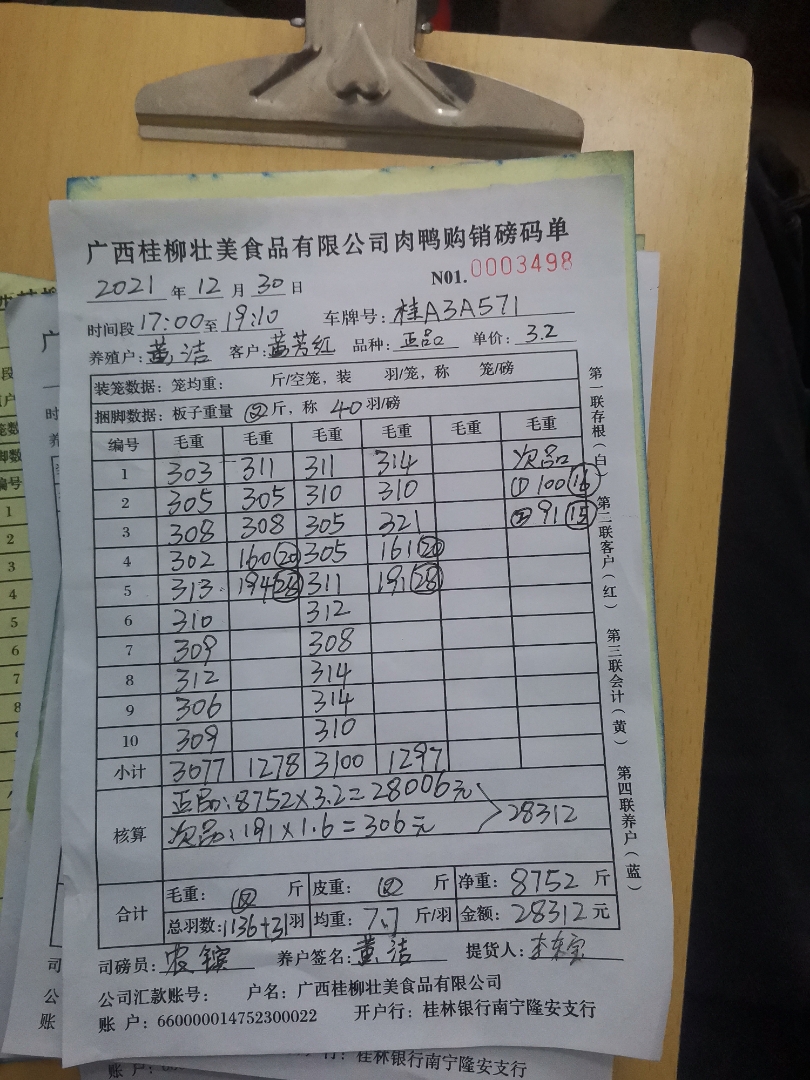 广西桂柳壮美食品有限公司肉鸭购销磅码单
2021 年 12 月 30 日 N01.0003498
时间段 17:00 至 19:10 车牌号: 桂A3A571
养殖户: 黄洁 客户: 黄芳红 品种: 正品 单价: 3.2
装笼数据: 笼均重: 斤/空笼, 装 羽/笼, 称 笼/磅
捆脚数据: 板子重量 斤, 称 40 羽/磅
编号 毛重 毛重 毛重 毛重 毛重 毛重
1 303 311 311 314 次品
2 305 305 310 310 ① 100 16
3 308 308 305 321 ② 91 15
4 302 160 20 305 161 20
5 313 194 28 311 191 28
6 310 312
7 309 308
8 312 314
9 306 314
10 309 310
小计 3077 1278 3100 1297
核算 正品: 8752×3.2=28006元
次品: 191×1.6=306元 28312
合计 毛重: 斤 皮重: 斤 净重: 8752 斤
总羽数: 1136+31 羽 均重: 7.7 斤/羽 金额: 28312 元
司磅员: 养户签名: 黄洁 提货人:
公司汇款账号: 户名: 广西桂柳壮美食品有限公司
账 户: 660000014752300022 开户行: 桂林银行南宁隆安支行
第一联存根(白) 第二联客户(红) 第三联会计(黄) 第四联养户(蓝)
桂林银行南宁隆安支行